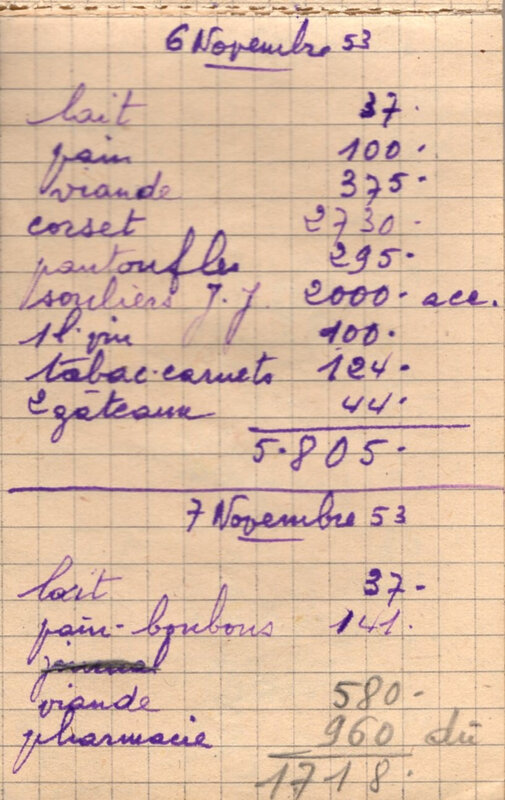 6 Novembre 53
lait 37.
pain 100.
viande 375.
corset 2730.
pantoufles 295.
souliers J.J. 2000. acc.
1 l. vin 100.
tabac-carnets 124.
2 gâteaux 44.
5.805.
7 Novembre 53
lait 37.
pain-bonbons 141.
journal
viande 580.
pharmacie 960 dû
1718.